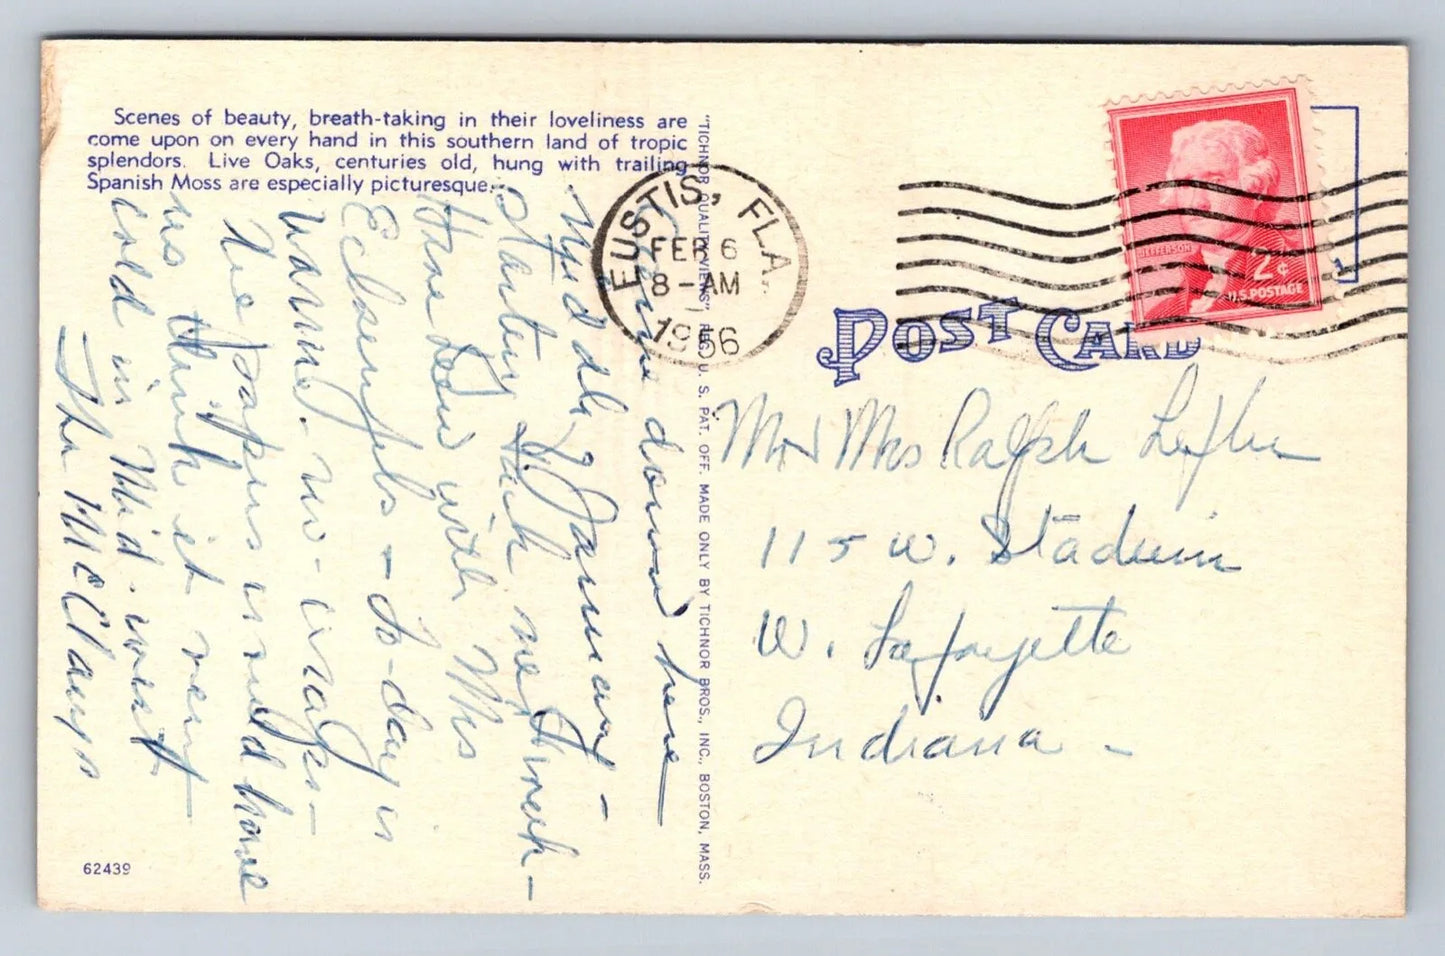 Scenes of beauty, breath-taking in their loveliness are
come upon on every hand in this southern land of tropic
splendors. Live Oaks, centuries old, hung with trailing
Spanish Moss are especially picturesque.
"TICHNOR QUALITY VIEWS", REG. U. S. PAT. OFF. MADE ONLY BY TICHNOR BROS., INC., BOSTON, MASS.
EUSTIS, FLA.
FEB 6
8-AM
1956
JEFFERSON
2¢
U.S. POSTAGE
POST CARD
down here
Middle January -
Starting back next week -
Have been with Mrs
- to-day is
warm. no - -
The papers would have
us think it very
cold in Mid-west
The McClays
Mr Mrs Ralph
115 W. Stadium
W. Lafayette
Indiana -
62439